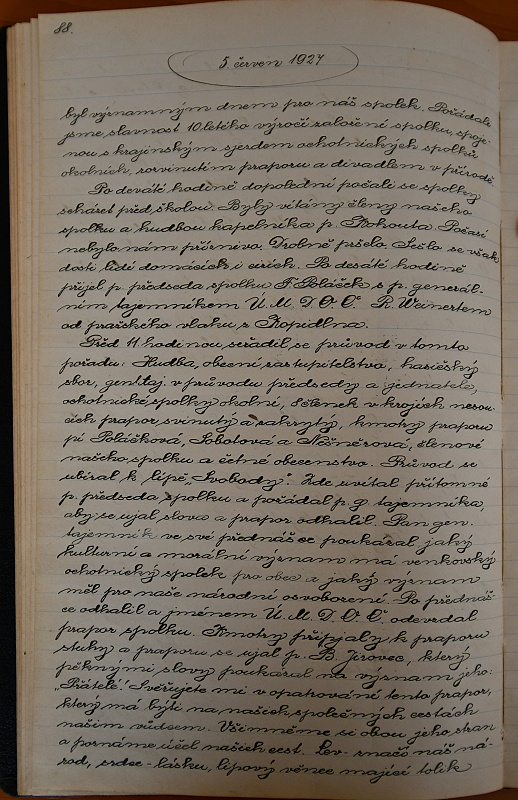 88.
5. červen 1927
byl významným dnem pro náš spolek. Pořádali
jsme slavnost 10 letého výročí založení spolku, spoje-
nou s krajinským sjezdem ochotnických spolků
okolních, rozvinutím praporu a divadlem v přírodě.
Po deváté hodině dopolední počali se spolky
scházet před školou. Byly vítány členy našeho
spolku a hudbou kapelníka p. Kohouta. Počasí
nebylo nám příznivo. Drobně pršelo. Sešlo se však
dosti lidí domácích i cizích. Po desáté hodině
přijel p. předseda spolku F. Poláček s p. generál-
ním tajemníkem Ú. M. D. O. Č. R. Weinertem
od pražského vlaku z Kopidlna.
Před 11 hodinou seřadil se průvod v tomto
pořadu: Hudba, obecní zastupitelstvo, hasičský
sbor, gen. taj. v průvodu předsedy a jednatele,
ochotnické spolky okolní, 8 členek v krojích nesou-
cích prapor svinutý a zakrytý, kmotry praporu
pí Poláčková, Sobotová a Nešněrová, členové
našeho spolku a četné obecenstvo. Průvod se
ubíral k lípě „Svobody“. Zde uvítal přítomné
p. předseda spolku a požádal p. g. tajemníka,
aby se ujal slova a prapor odhalil. Pan gen.
tajemník ve své přednášce poukázal jaký
kulturní a morální význam má venkovský
ochotnický spolek pro obec a jaký význam
měl pro naše národní osvobození. Po přednáš-
ce odhalil a jménem Ú. M. D. O. Č. odevzdal
prapor spolku. Kmotry připjaly k praporu
stuhy a praporu se ujal p. B. Jirovec, který
pěknými slovy poukázal na význam jeho:
„Přátelé! Svěřujete mi v opatrování tento prapor,
který má býti na našich společných cestách
naším vůdcem. Všimněme si obou jeho stran
a poznáme účel našich cest. Lev - značí náš ná-
rod, srdce - lásku, lipový věnec mající tolik